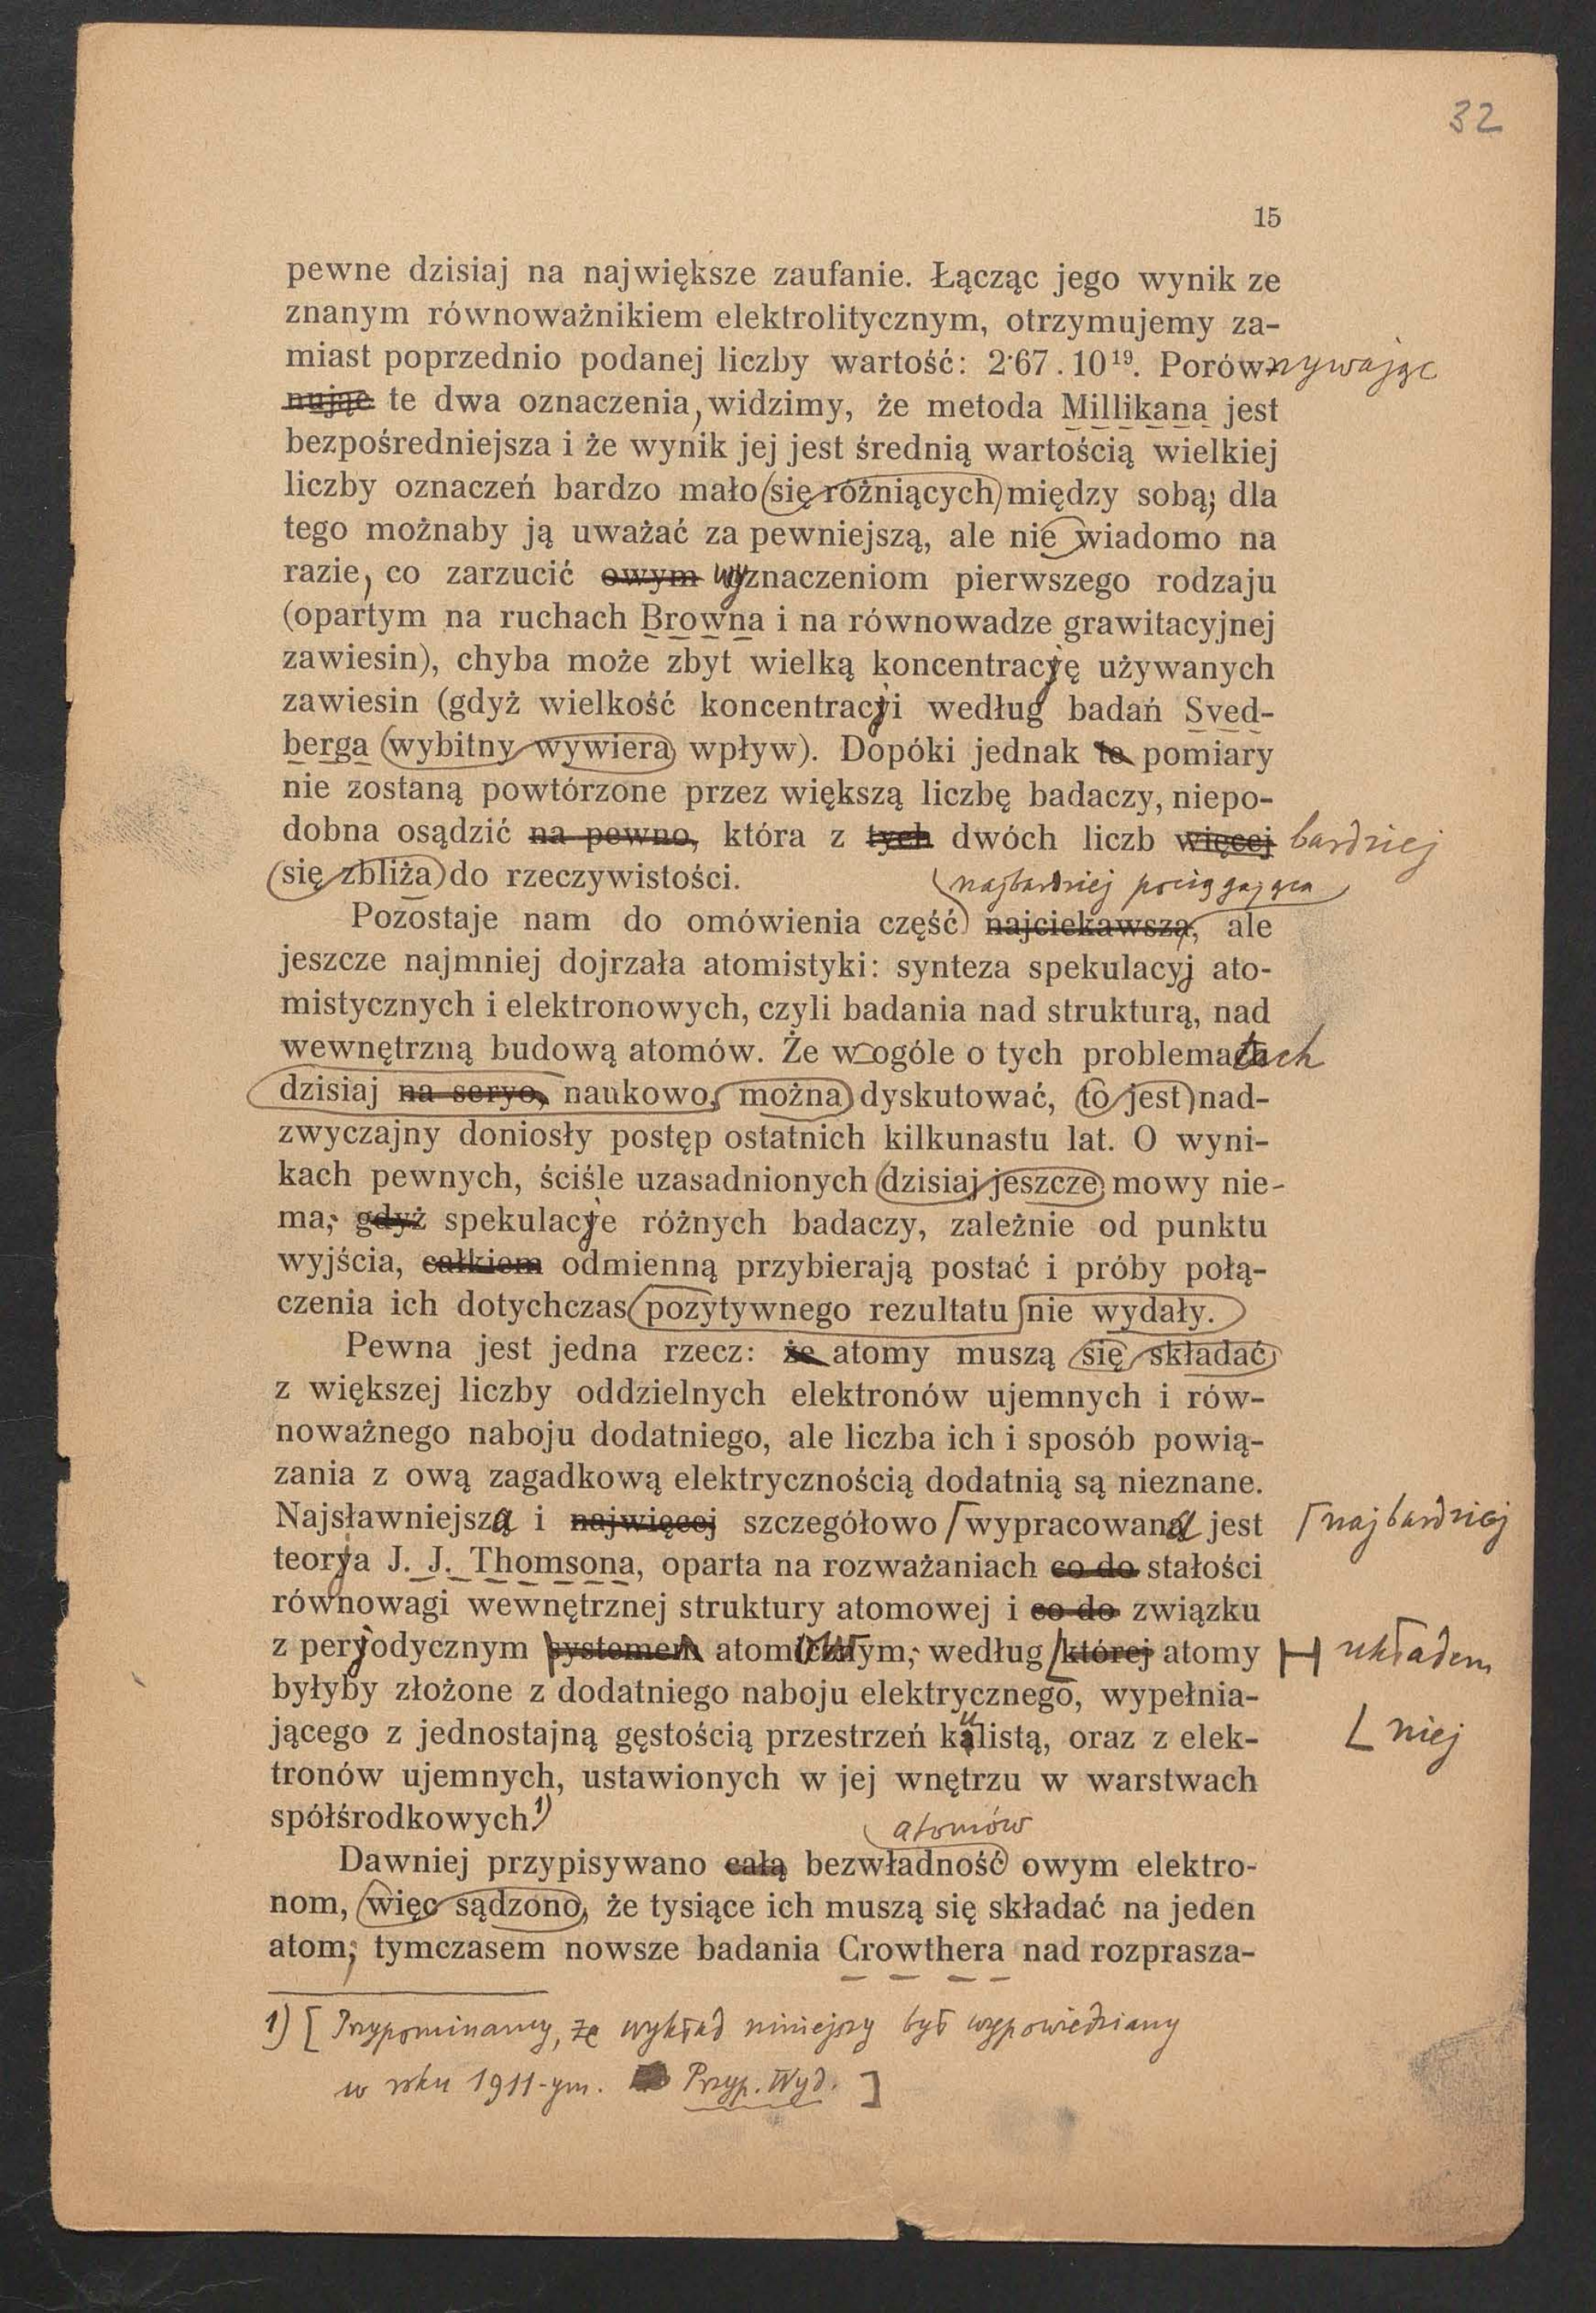 32
15
pewne dzisiaj na największe zaufanie. Łącząc jego wynik ze
znanym równoważnikiem elektrolitycznym, otrzymujemy za-
miast poprzednio podanej liczby wartość: 2·67 . 10¹⁹. Porównywając
nując te dwa oznaczenia, widzimy, że metoda Millikana jest
bezpośredniejsza i że wynik jej jest średnią wartością wielkiej
liczby oznaczeń bardzo mało się różniących między sobą; dla
tego możnaby ją uważać za pewniejszą, ale nie wiadomo na
razie, co zarzucić owym wyznaczeniom pierwszego rodzaju
(opartym na ruchach Browna i na równowadze grawitacyjnej
zawiesin), chyba może zbyt wielką koncentrację używanych
zawiesin (gdyż wielkość koncentracji według badań Sved-
berga wybitny wywiera wpływ). Dopóki jednak te pomiary
nie zostaną powtórzone przez większą liczbę badaczy, niepo-
dobna osądzić na pewno, która z tych dwóch liczb więcej bardziej
się zbliża do rzeczywistości.
najbardziej pociągająca
Pozostaje nam do omówienia część najciekawsza, ale
jeszcze najmniej dojrzała atomistyki: synteza spekulacyj ato-
mistycznych i elektronowych, czyli badania nad strukturą, nad
wewnętrzną budową atomów. Że w ogóle o tych problematach
dzisiaj na seryo, naukowo, można dyskutować, to jest nad-
zwyczajny doniosły postęp ostatnich kilkunastu lat. O wyni-
kach pewnych, ściśle uzasadnionych dzisiaj jeszcze mowy nie-
ma; gdyż spekulacje różnych badaczy, zależnie od punktu
wyjścia, całkiem odmienną przybierają postać i próby połą-
czenia ich dotychczas pozytywnego rezultatu nie wydały.
Pewna jest jedna rzecz: że atomy muszą się składać
z większej liczby oddzielnych elektronów ujemnych i rów-
noważnego naboju dodatniego, ale liczba ich i sposób powią-
zania z ową zagadkową elektrycznością dodatnią są nieznane.
Najsławniejszą i najwięcej szczegółowo wypracowaną jest najbardziej
teorja J. J. Thomsona, oparta na rozważaniach co do stałości
równowagi wewnętrznej struktury atomowej i co do związku
z perjodycznym systemem atomowym, według której atomy układem
byłyby złożone z dodatniego naboju elektrycznego, wypełnia-
jącego z jednostajną gęstością przestrzeń kulistą, oraz z elek- niej
tronów ujemnych, ustawionych w jej wnętrzu w warstwach
spółśrodkowych.¹)
atomów
Dawniej przypisywano całą bezwładność owym elektro-
nom, więc sądzono, że tysiące ich muszą się składać na jeden
atom; tymczasem nowsze badania Crowthera nad rozprasza-
1) [ Przypominamy, że wykład niniejszy był wypowiedziany
w roku 1911-ym. Przyp. Wyd. ]